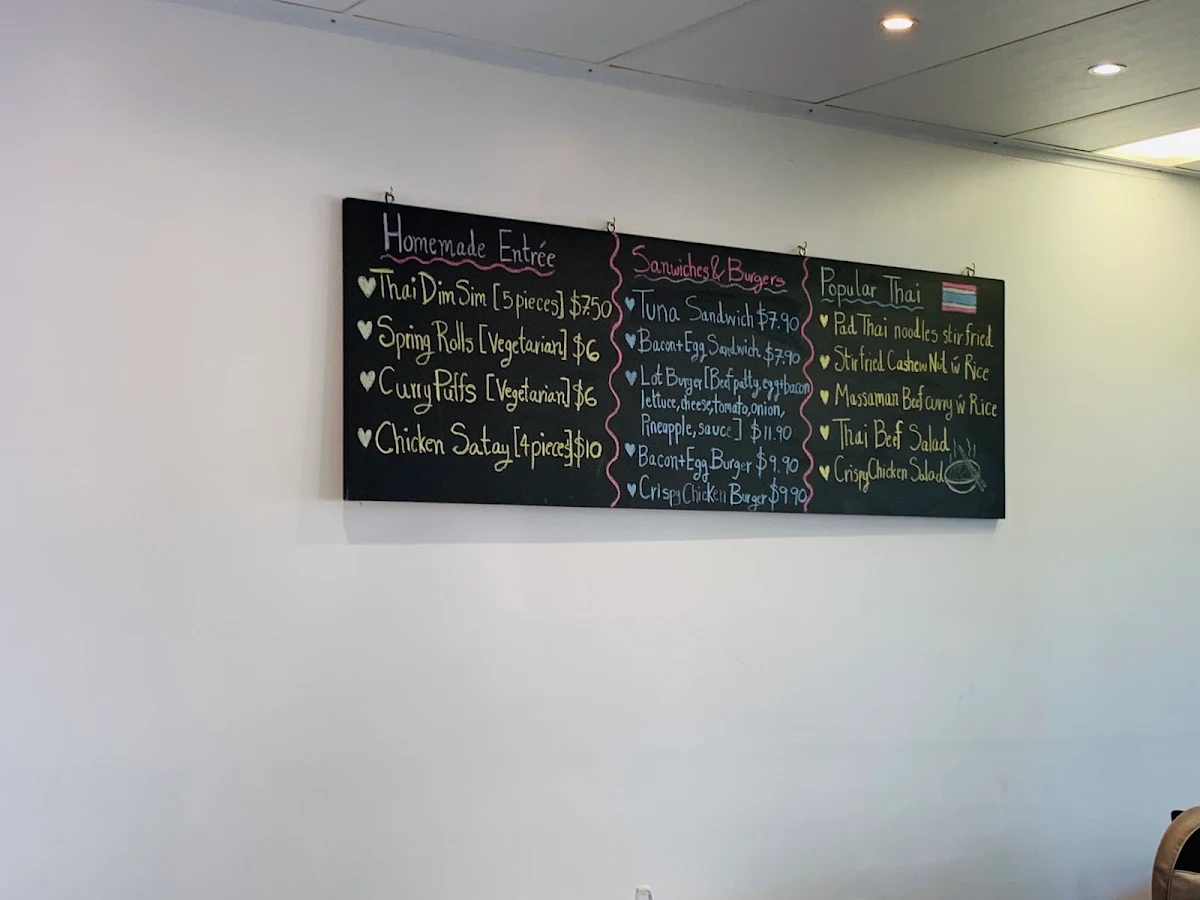 Homemade Entrée
Thai Dim Sim [5 pieces] $7.50
Spring Rolls [Vegetarian] $6
Curry Puffs [Vegetarian] $6
Chicken Satay [4 pieces] $10
Sanwiches & Burgers
Tuna Sandwich $7.90
Bacon+Egg Sandwich $7.90
Lot Burger [Beef patty, egg+bacon
lettuce, cheese, tomato, onion,
Pineapple, sauce] $11.90
Bacon+Egg Burger $9.90
Crispy Chicken Burger $9.90
Popular Thai
Pad Thai noodles stir fried
Stir fried Cashew Nut w Rice
Massaman Beef curry w Rice
Thai Beef Salad
Crispy Chicken Salad